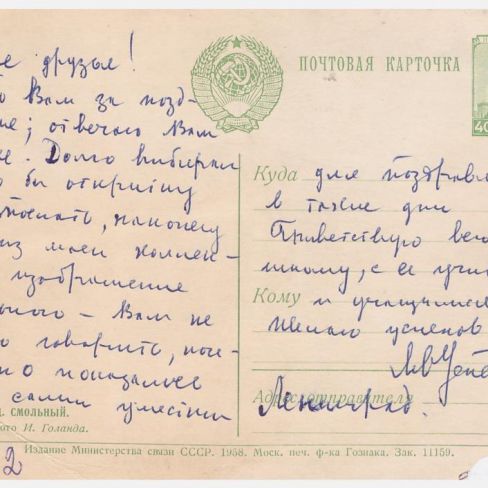 е друзья!
Вам за позд-
ие; отвечаю Вам
е. Долго выбирал
бы открытку
послать, наконец
из моей коллек-
изображение
ного – Вам не
о говорить, поче-
о показалась
самым уместным
д. СМОЛЬНЫЙ.
ото И. Голанда.
2
ПОЧТОВАЯ КАРТОЧКА
40
Куда
для поздравле
в такие дни
Приветствую Ва
школу, с её учи
Кому
и учащимися
успехов
Адрес отправителя
Ленинград.
Издание Министерства связи СССР. 1958. Моск. печ. ф-ка Гознака. Зак. 11159.